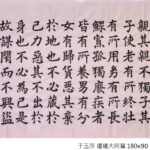 親其親不獨子其
子使老有所終壯
有所用幼有所長
鰥寡孤獨廢疾者
皆有所養男有分
女有歸貨惡其棄
於地也不必藏於
己力惡其不出於
身也不必為己是
故謀閉而不興盜
于玉萍 禮運大同篇 180x90